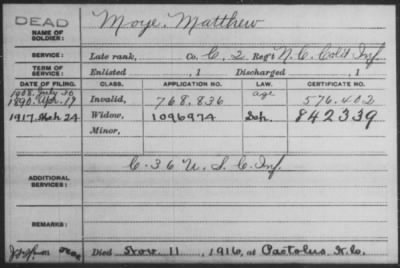 DEAD
NAME OF SOLDIER:
Moye, Matthew
SERVICE:
Late rank, Co. C, 2 Reg't N.C. Col'd Inf.
TERM OF SERVICE:
Enlisted , 1 Discharged , 1
DATE OF FILING. CLASS. APPLICATION NO. LAW. CERTIFICATE NO.
1908. July 30 age
1890. Apr. 17 Invalid, 768.836 576.402
1917. Mch 24 Widow, 1096974 842339
Minor,
ADDITIONAL SERVICES:
C-36 U.S.C. Inf.
REMARKS:
Died Nov. 11, 1916, at Pactolus N.C.